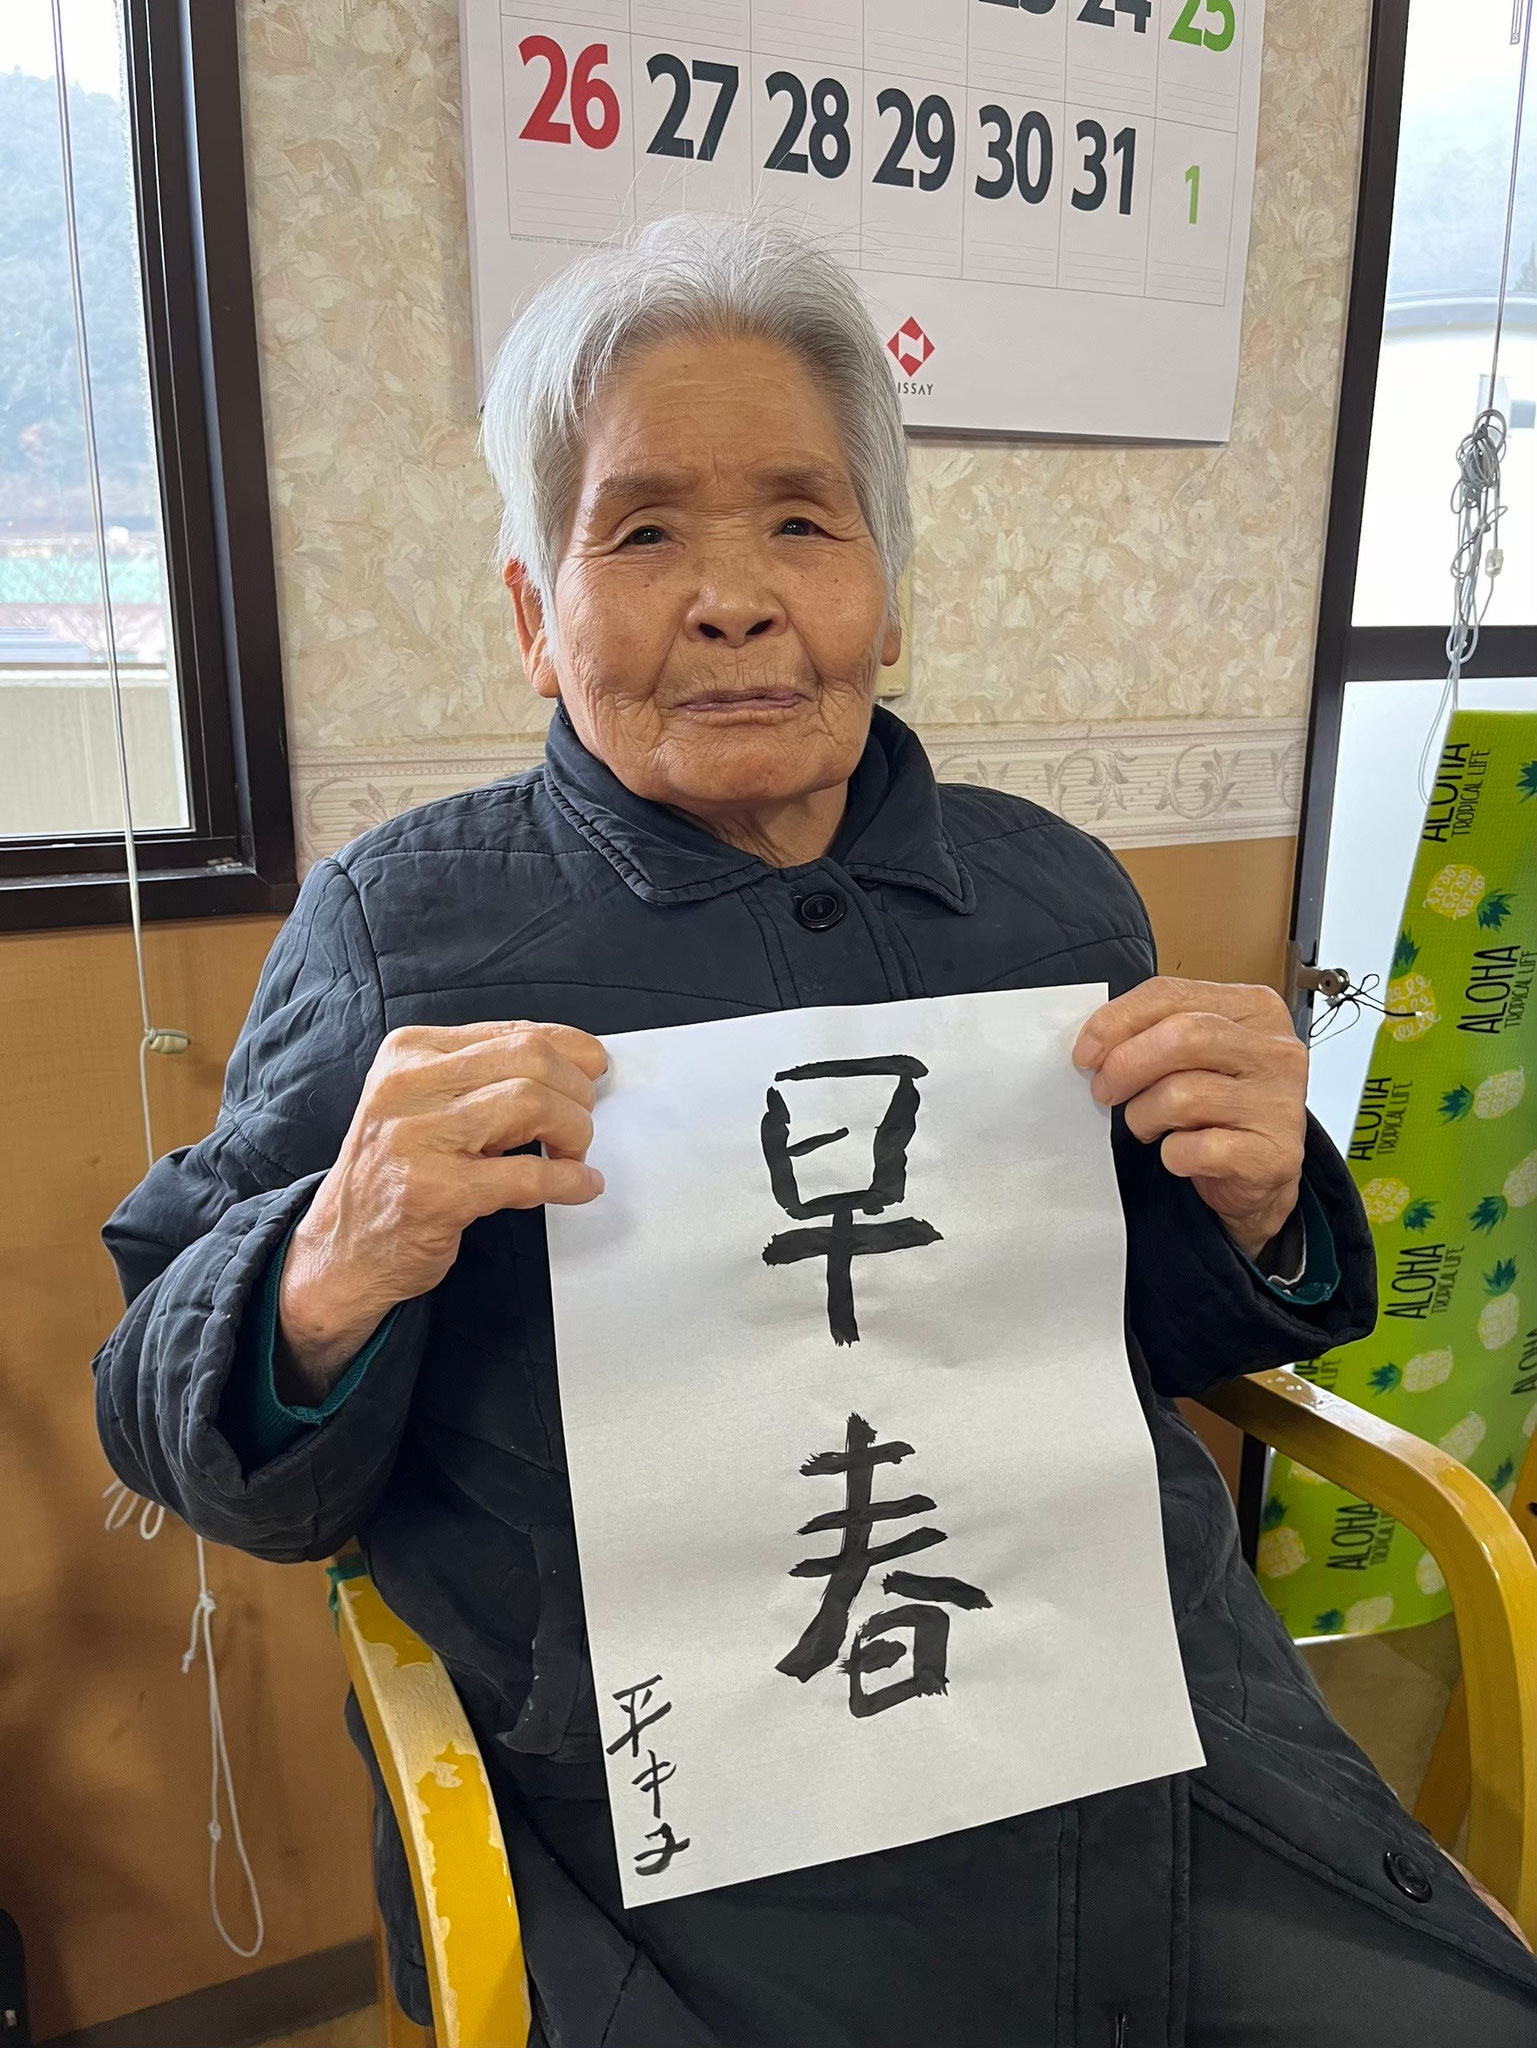 24 25
26 27 28 29 30 31 1
ISSAY
早春
平キ子
ALOHA
TROPICAL LIFE
ALOHA
TROPICAL LIFE
ALOHA
TROPICAL LIFE
ALOHA
TROPICAL LIFE
ALOHA
TROPICAL LIFE